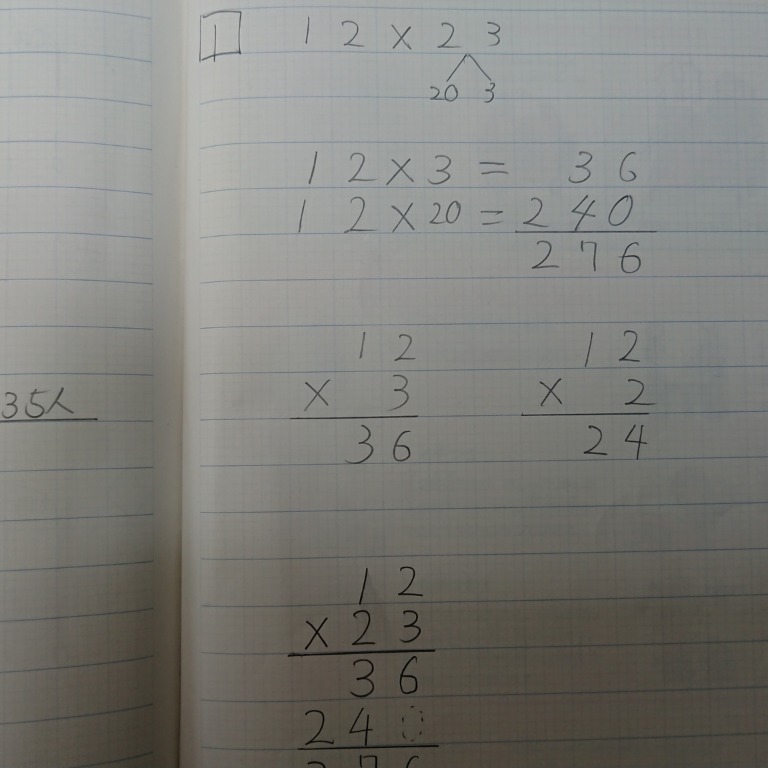 35人
1 12×23
20 3
12×3= 36
12×20=240
276
12 12
× 3 × 2
36 24
12
×23
36
240
276